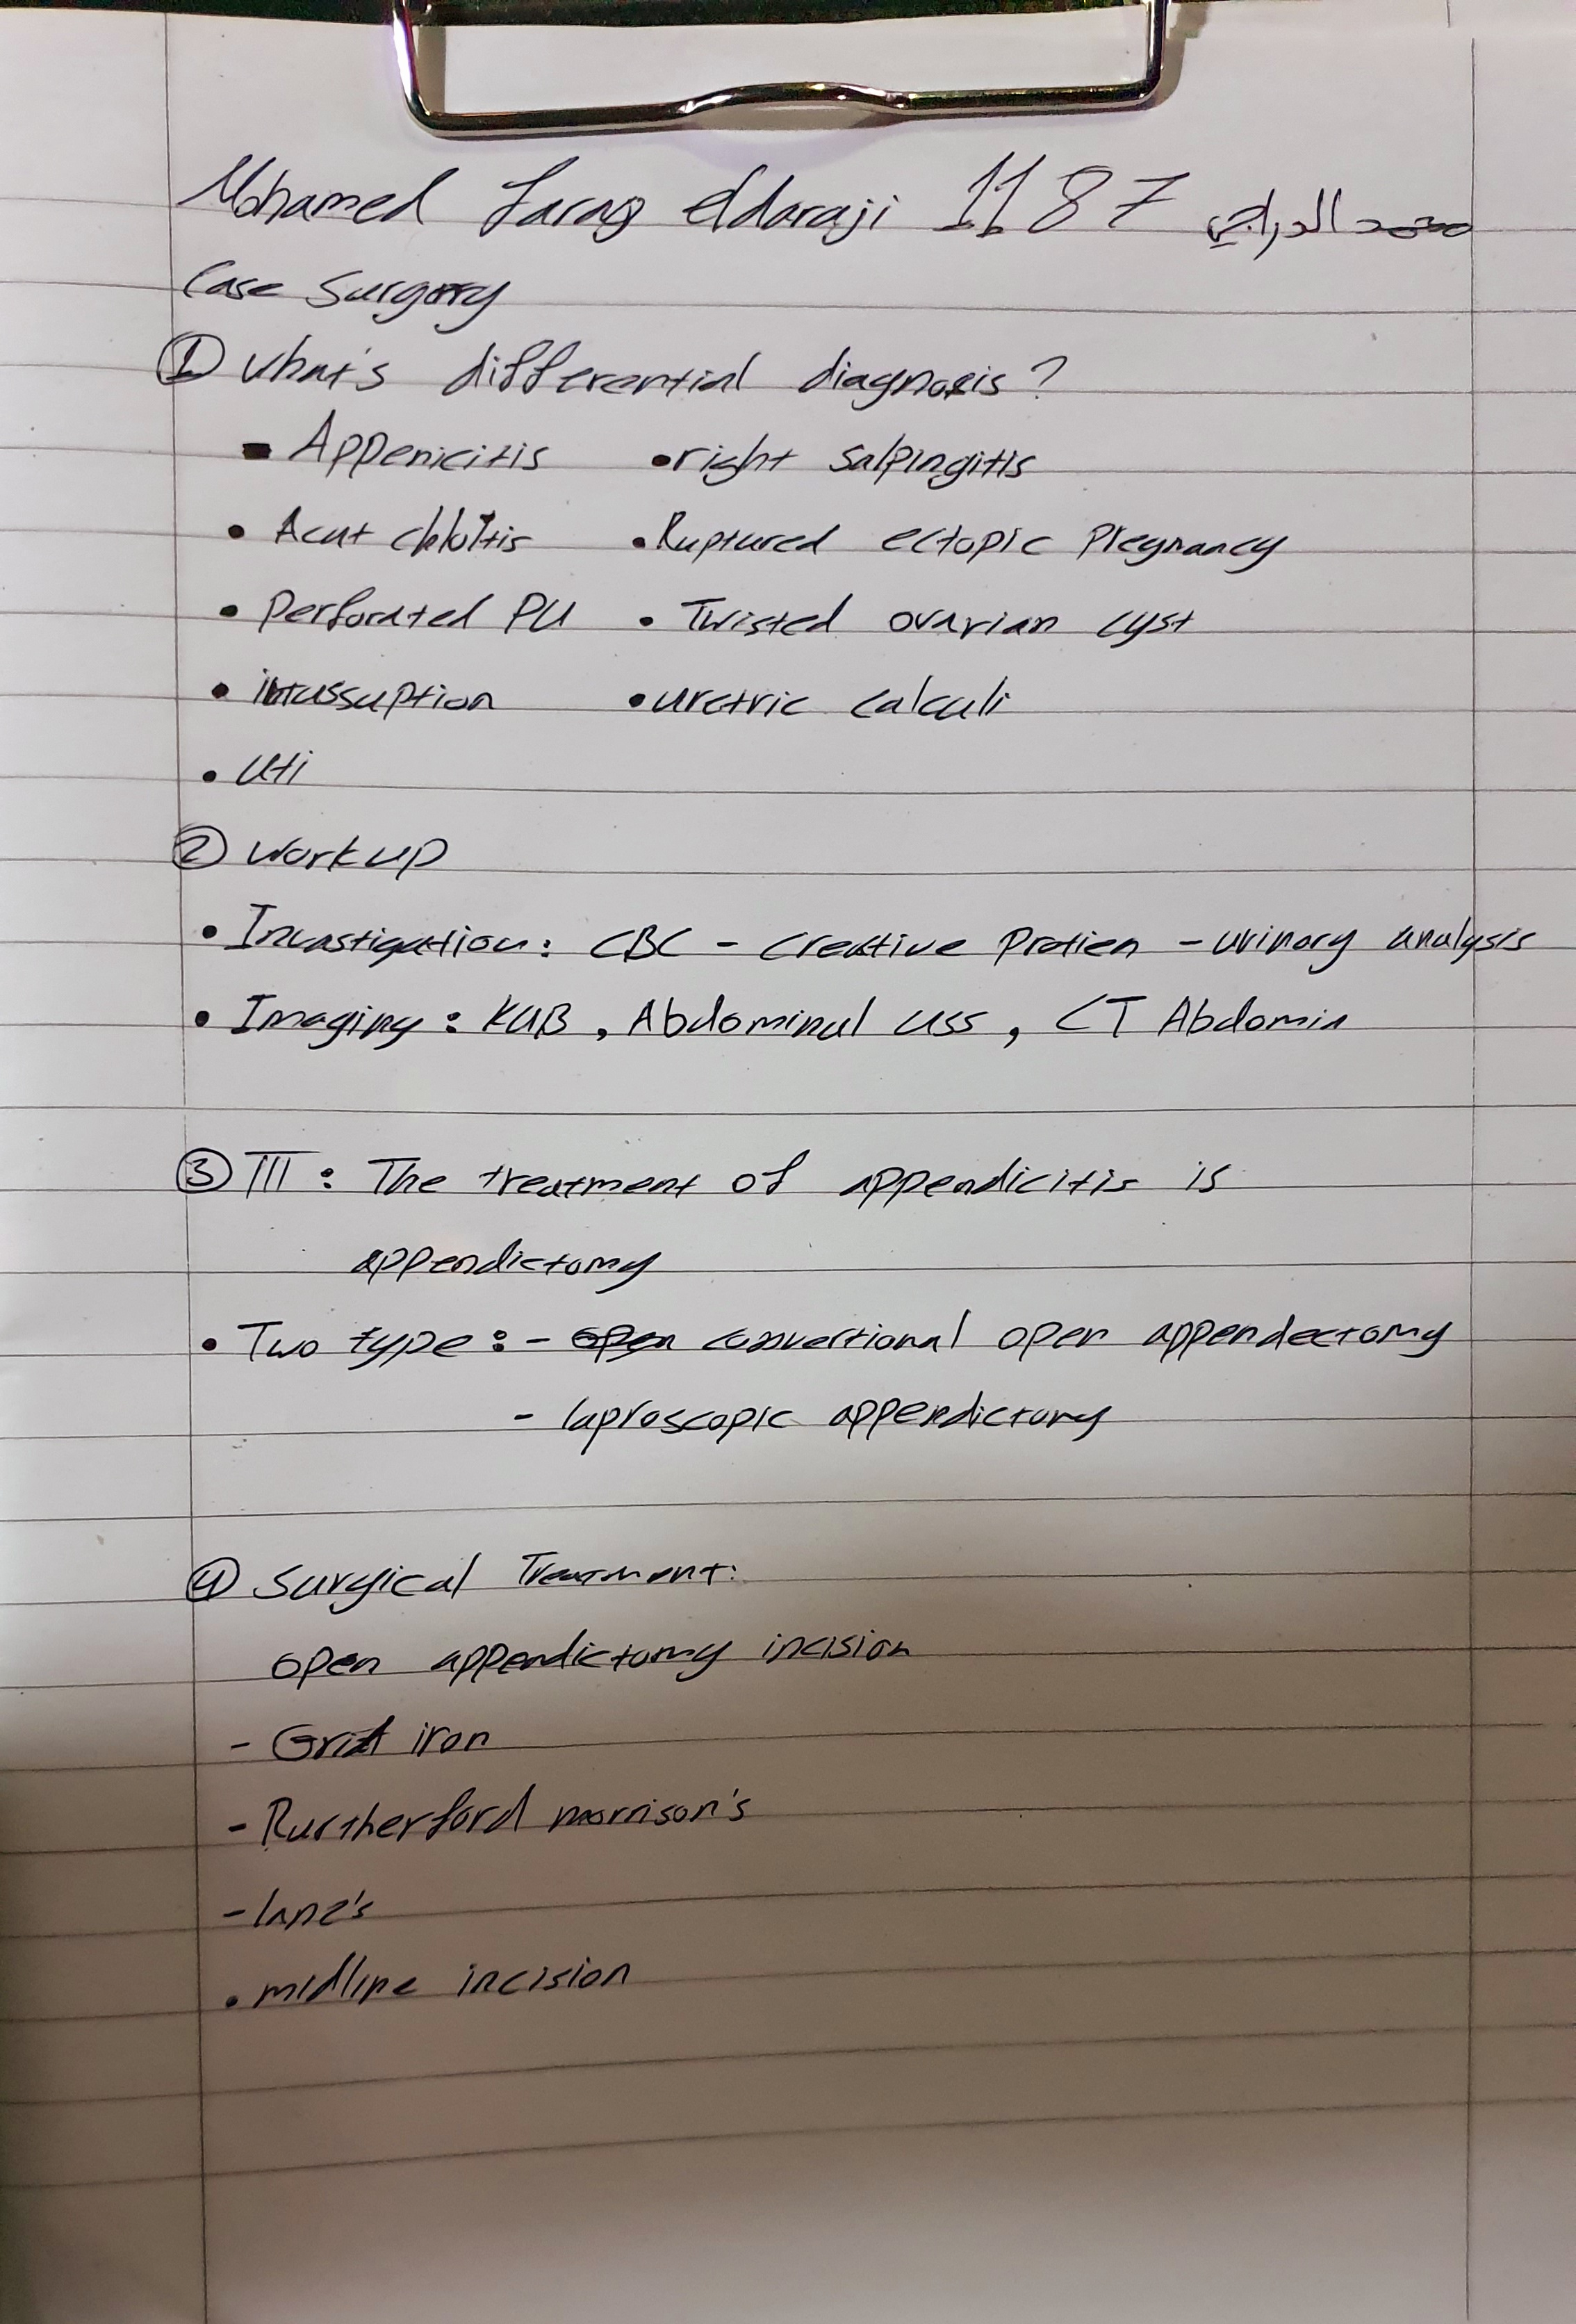 Mohamed farag eldaraji 1187 محمد الدراجي
Case Surgery
① what's differential diagnosis?
▪ Appenicitis • right salpingitis
• Acut • Ruptured ectopic Plegnancy
• Perforated PU • Twisted ovarian cyst
• intussuption • uretric calculi
• uti
② work up
• Invastigation: CBC - creative Protien - urinary analysis
• Imaging: KUB, Abdominal USS, CT Abdomin
③ TTT: The treatment of appendicitis is
appendictomy
• Two type: - open convertional open appendectomy
- laproscopic appendictomy
④ Surgical Treatment:
open appendictomy incision
- Grid iron
- Rurtherford morrison's
- lane's
• midline incision